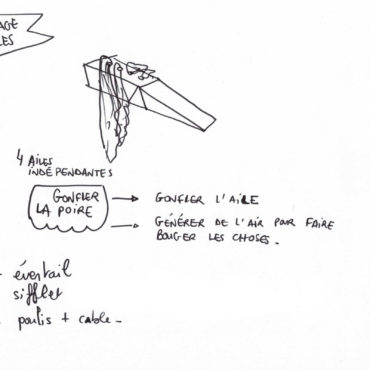 AGE
LES
4 AILES
INDÉPENDANTES
GONFLER
LA POIRE
GONFLER L'AILE
GÉNÉRER DE L'AIR POUR FAIRE
BOUGER LES CHOSES.
éventail
sifflet
poulis + cable.